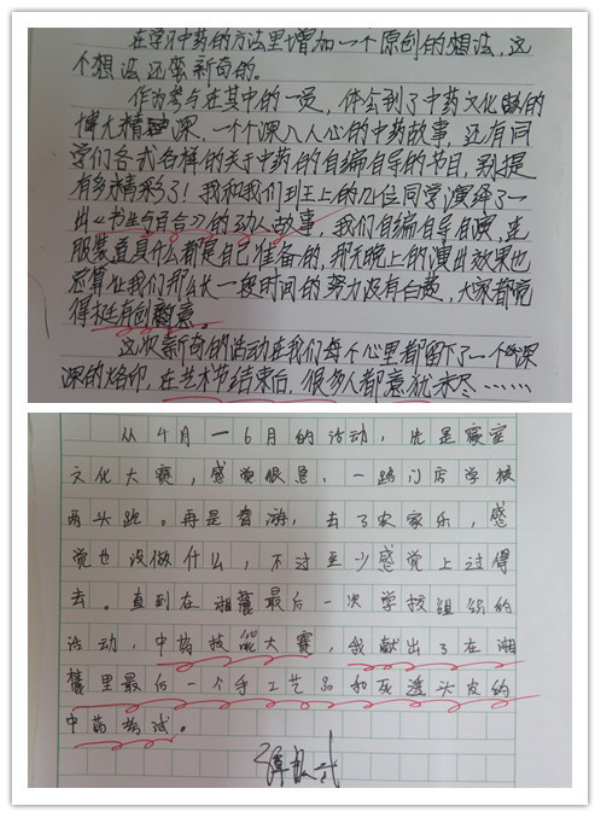 在学习中药的方法里增加一个原创的想法,这
个想法还蛮新奇的。
作为参与在其中的一员,体会到了中药文化的
博大精深,一个个深入人心的中药故事,还有同
学们各式各样的关于中药的自编自导的节目,别提
有多精彩了!我和我们班上的几位同学演绎了一
出《书生与百合》的动人故事,我们自编自导自演,连
服装道具什么都是自己准备的,那天晚上的演出效果也
总算让我们那么长一段时间的努力没有白费,大家都觉
得挺有创意。
这次新奇的活动在我们每个心里都留下了一个深
深的烙印,在艺术节结束后,很多人都意犹未尽……
从4月一6月的活动,先是寝室
文化大赛,感觉很急,一路门店学校
两头跑。再是春游,去了农家乐,感
觉也没做什么,不过至少感觉上过得
去。直到在湘麓最后一次学校组织的
活动,中药技能大赛,我献出了在湘
麓里最后一个手工艺品和死透头皮的
中药考试。